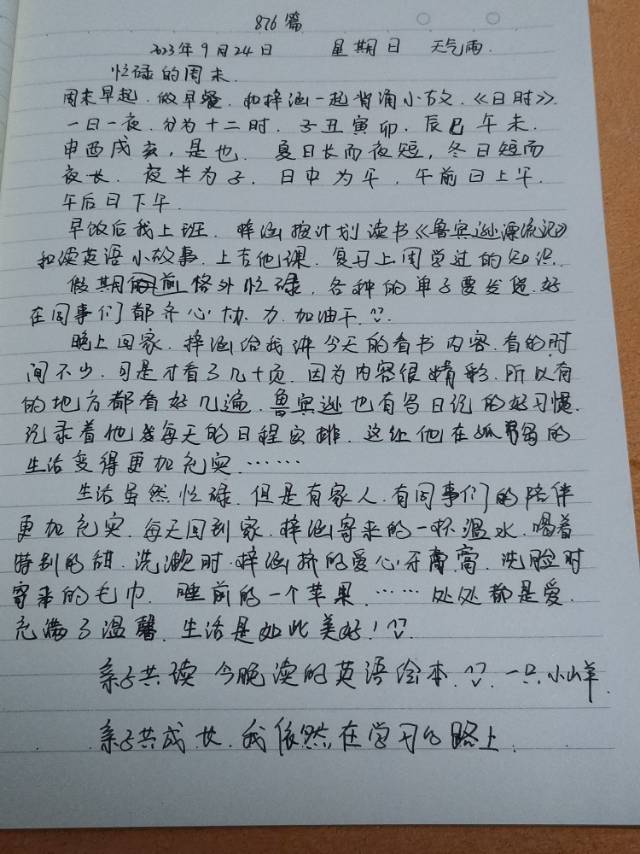 876篇
2023年9月24日 星期日 天气雨
忙碌的周末.
周末早起.做早餐.和梓涵一起背诵小古文.《日时》.
一日一夜.分为十二时.子丑寅卯.辰巳午未.
申酉戌亥,是也.夏日长而夜短,冬日短而
夜长.夜半为子.日中为午,午前曰上午.
午后曰下午.
早饭后我上班.梓涵按计划读书《鲁宾逊漂流记》
和读英语小故事.上吉他课.复习上周学过的知识.
假期前格外忙碌,各种的单子要发货.好
在同事们都齐心协力.加油干.
晚上回家.梓涵给我讲今天的看书内容.看的时
间不少.可是才看了几十页.因为内容很精彩.所以有
的地方都看好几遍.鲁宾逊也有写日记的好习惯.
记录着他每天的日程安排.这让他在孤岛的
生活变得更加充实.……
生活虽然忙碌.但是有家人.有同事们的陪伴
更加充实.每天回到家.梓涵寄来的一杯温水.喝着
特别的甜.洗漱时.梓涵挤的爱心牙膏.洗脸时
寄来的毛巾.睡前的一个苹果.……处处都是爱.
充满了温馨.生活是如此美好!
亲子共读 今晚读的英语绘本.一只小山羊.
亲子共成长.我依然在学习的路上.